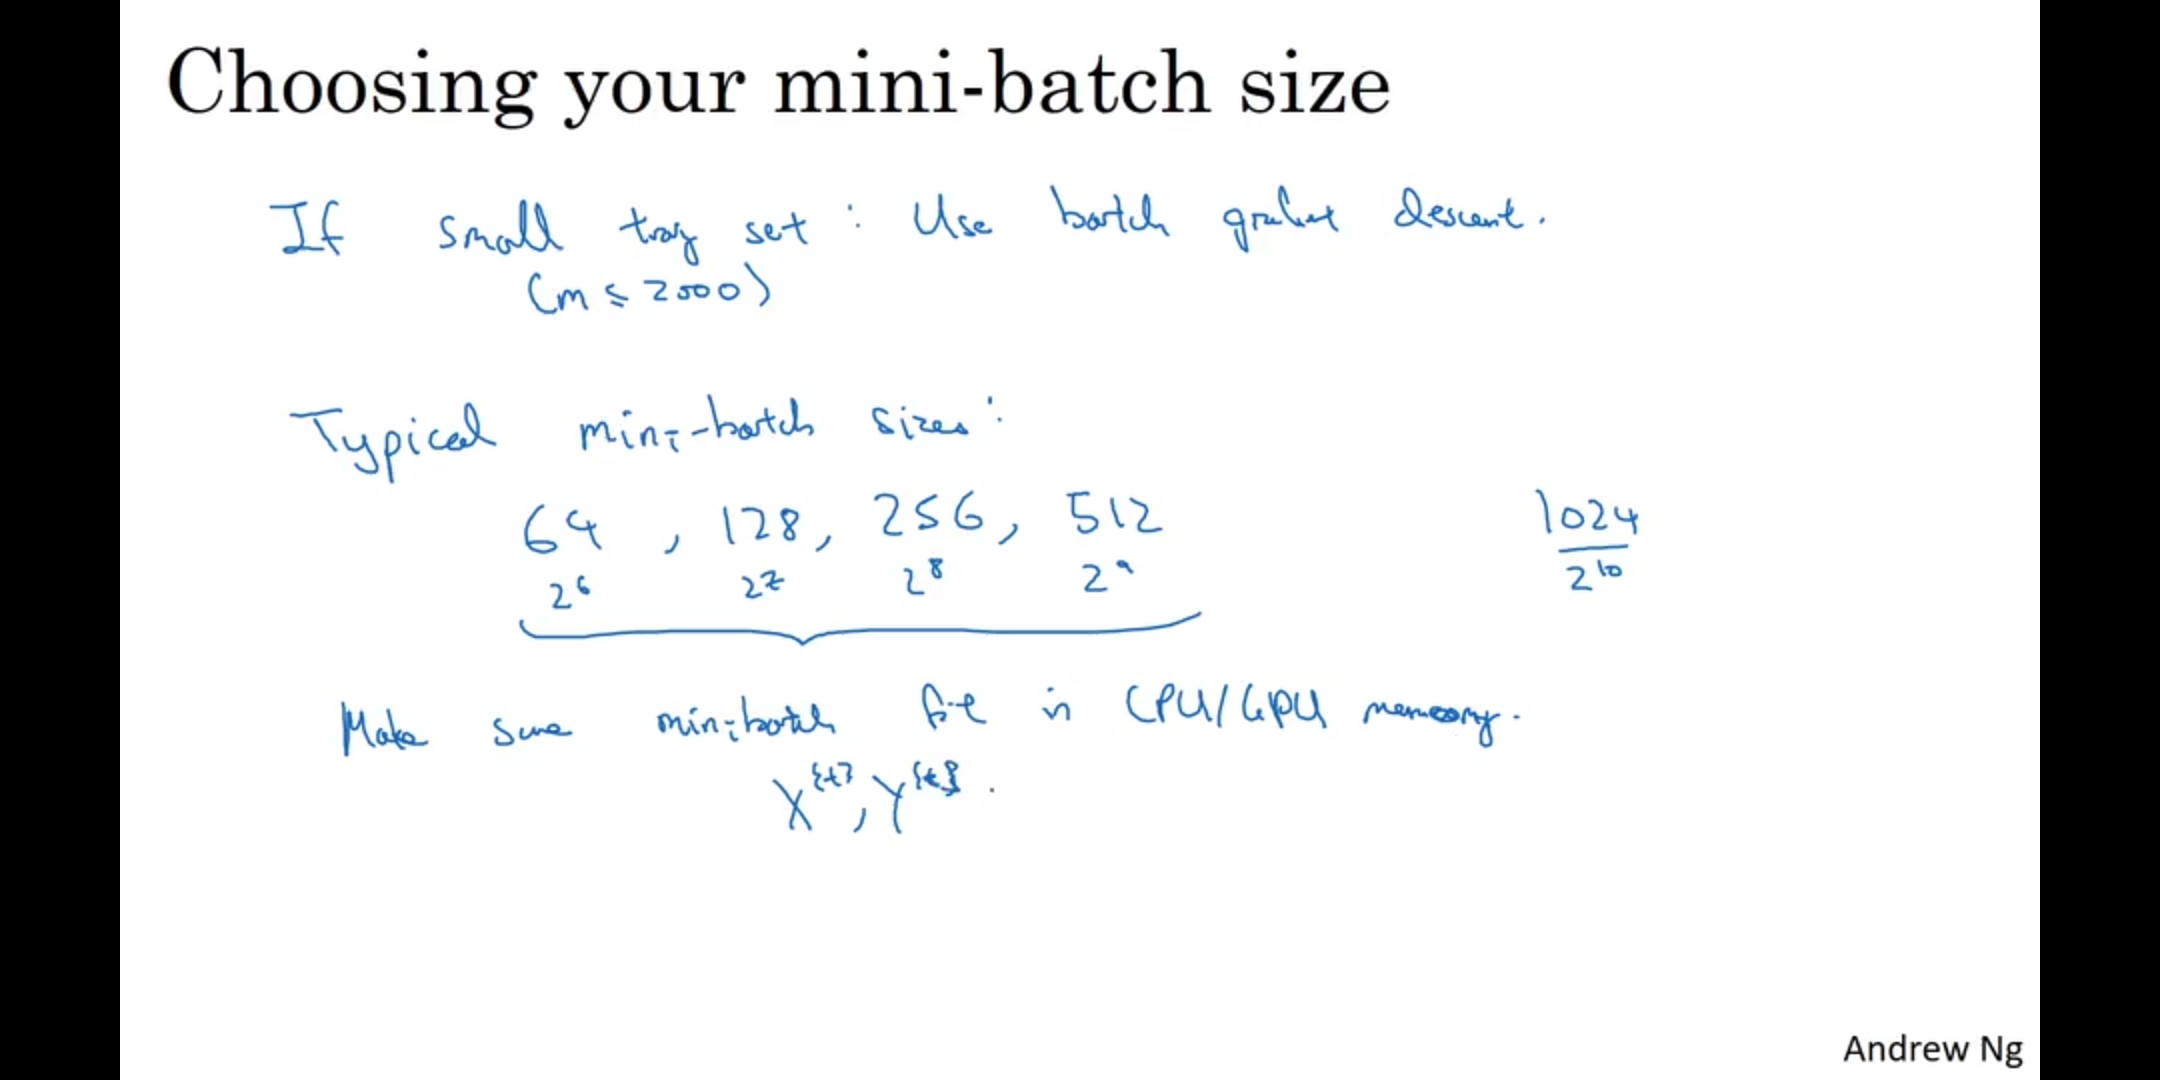 Choosing your mini-batch size
If small trag set : Use batch gradient descent.
(m ≤ 2000)
Typical mini-batch sizes:
64 , 128, 256, 512 1024
2⁶ 2⁷ 2⁸ 2⁹ 2¹⁰
Make sure minibatch fit in CPU/GPU memory.
X^{t}, Y^{t}.
Andrew Ng